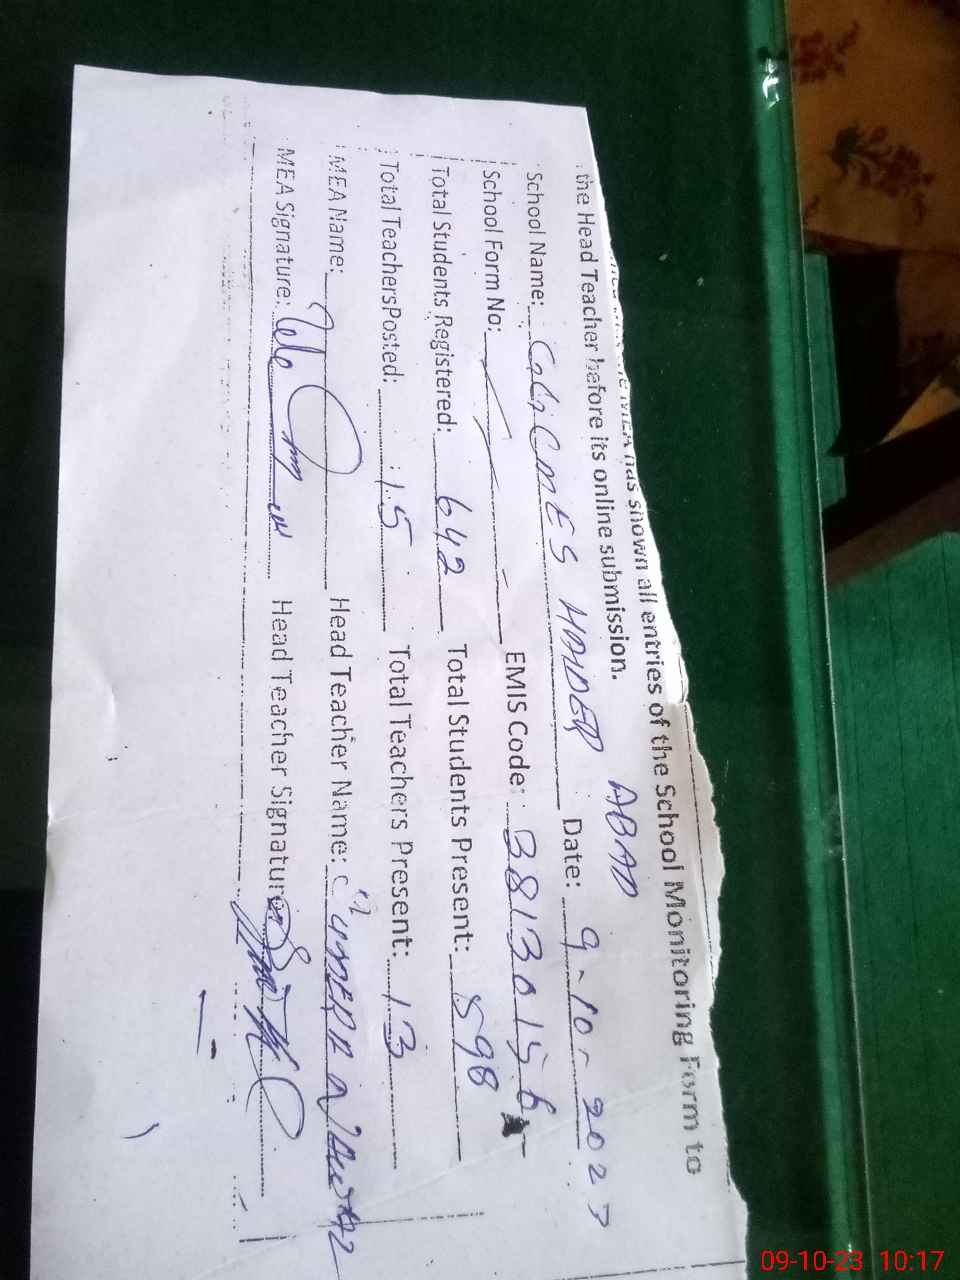 the MEA has shown all entries of the School Monitoring Form to
the Head Teacher before its online submission.
School Name: G.G.CMES HAIDER ABAD Date: 9-10-2023
School Form No: EMIS Code: 38130156
Total Students Registered: 642 Total Students Present: 598
Total TeachersPosted: 15 Total Teachers Present: 13
MEA Name: Head Teacher Name:
MEA Signature: Head Teacher Signature:
09-10-23 10:17